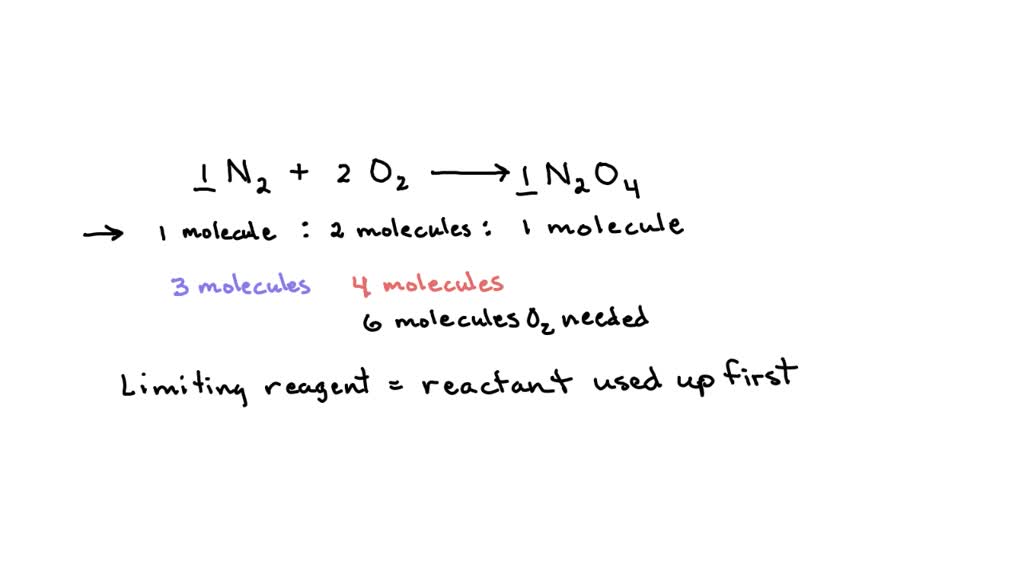 1 N₂ + 2 O₂ ⟶ 1 N₂O₄
→ 1 molecule : 2 molecules : 1 molecule
3 molecules 4 molecules
6 molecules O₂ needed
Limiting reagent = reactant used up first